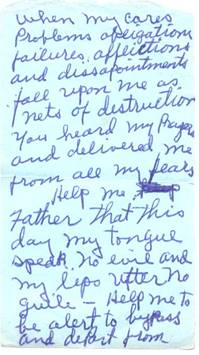 When my cares
Problems obligations
failures, afflictions
and dissapointments
fall upon me as
nets of destruction
You heard my Prayers
and delivered me
from all my fears
Help me
Father That This
day my tongue
speak no evil and
my lips utter no
guile – Help me to
be alert to bypass
and depart from